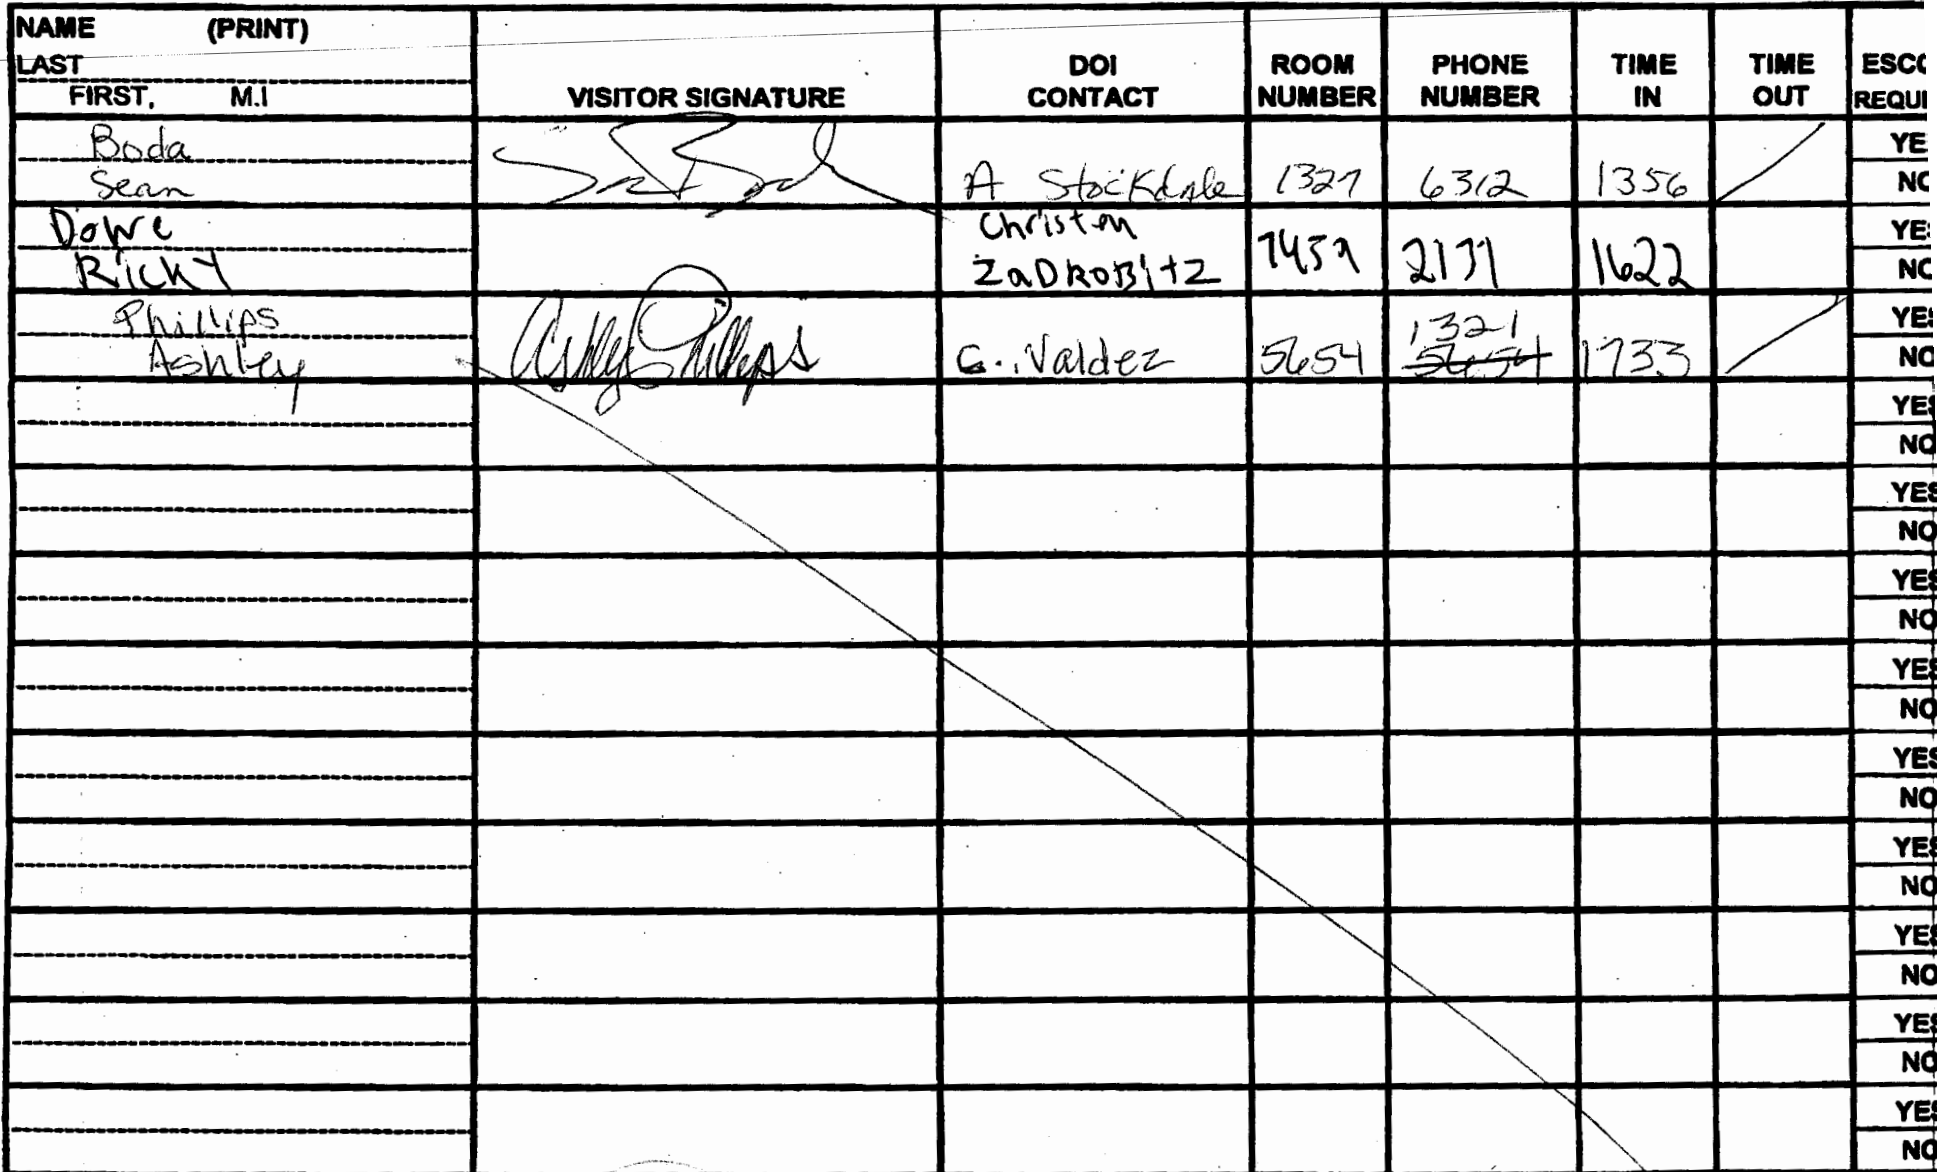 NAME (PRINT)
LAST
FIRST, M.I
VISITOR SIGNATURE
DOI
CONTACT
ROOM
NUMBER
PHONE
NUMBER
TIME
IN
TIME
OUT
ESCO
REQUI
Boda
Sean
A Stockdale 1327 6312 1356
YE
NO
Ricky
Christen
ZaDRoBitz
1622
YES
NO
Phillips
Ashley
Ashley Phillips
C. Valdez 5654
1321
5654
1733
YES
NO
YES
NO
YES
NO
YES
NO
YES
NO
YES
NO
YES
NO
YES
NO
YES
NO
YES
NO